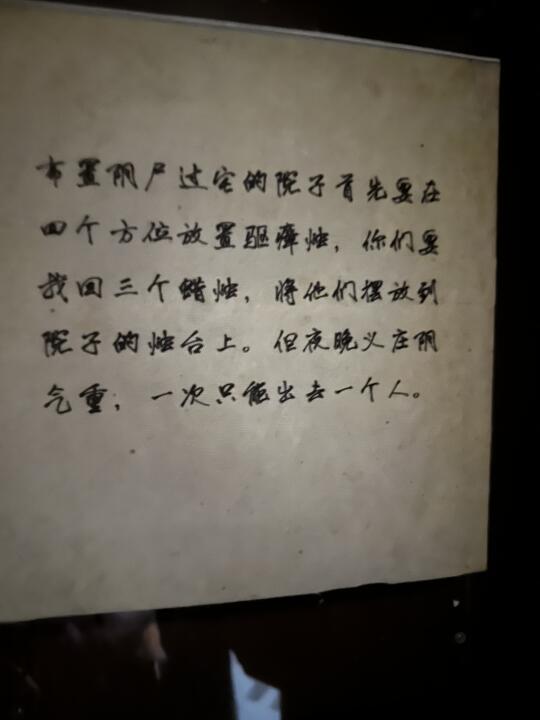 布置阴尸过宅的院子首先要在
四个方位放置驱瘴烛，你们要
找回三个蜡烛，将他们摆放到
院子的烛台上。但夜晚义庄阴
气重，一次只能出去一个人。